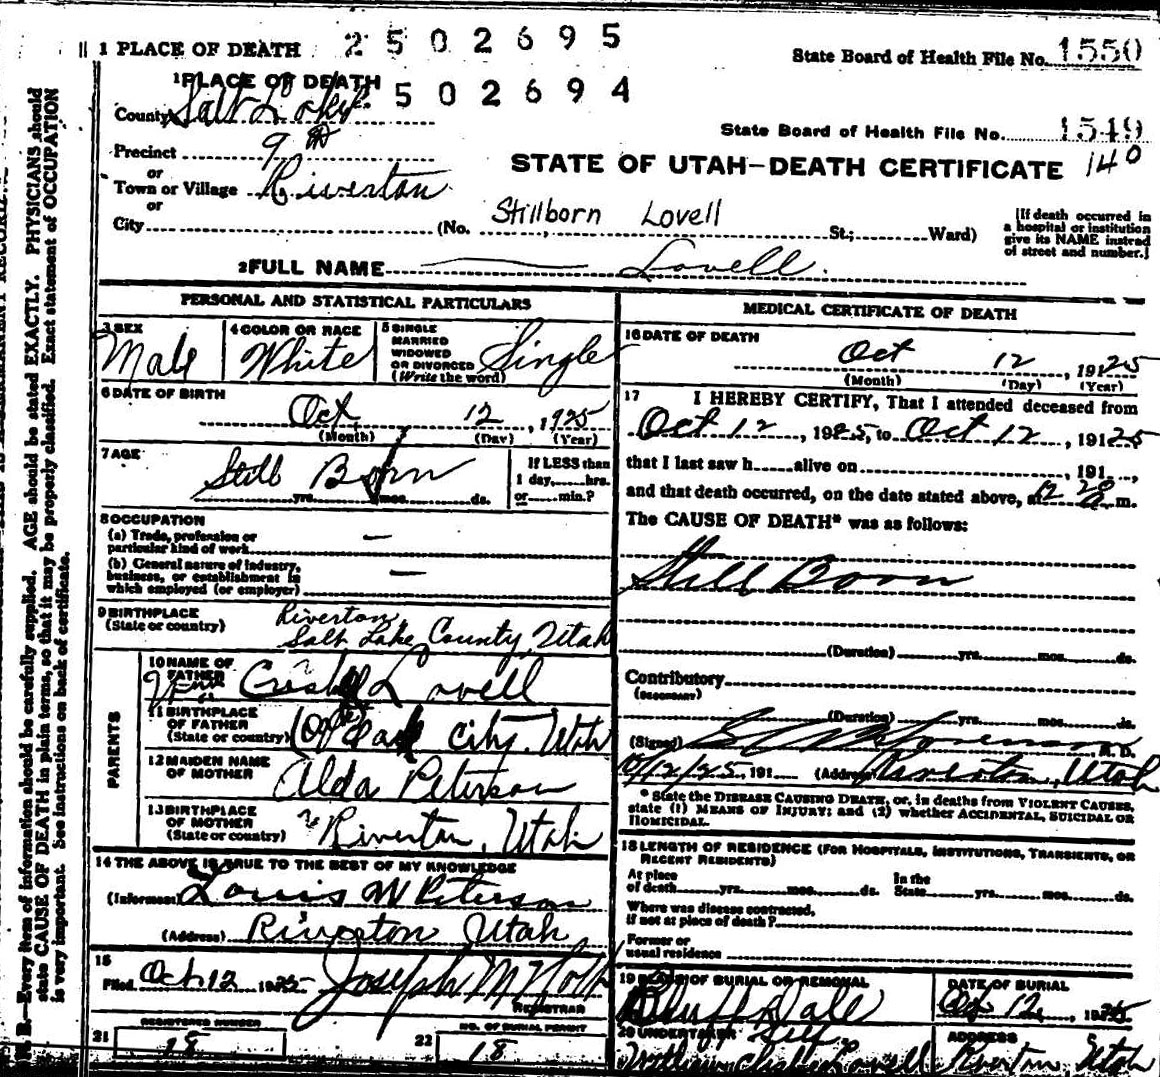 1 PLACE OF DEATH 2502695 State Board of Health File No. 1550
1 PLACE OF DEATH 502694
County Salt Lake State Board of Health File No. 1549
Precinct 9th
or
Town or Village Riverton STATE OF UTAH—DEATH CERTIFICATE 140
or
City (No. Stillborn Lovell St.; Ward) [If death occurred in a hospital or institution give its NAME instead of street and number.]
2 FULL NAME Lovell.
PERSONAL AND STATISTICAL PARTICULARS
3 SEX Male
4 COLOR OR RACE White
5 SINGLE MARRIED WIDOWED OR DIVORCED (Write the word) Single
6 DATE OF BIRTH
Oct 12, 1925
(Month) (Day) (Year)
7 AGE Still Born
yrs. mos. ds.
If LESS than
1 day, hrs.
or min.?
8 OCCUPATION
(a) Trade, profession or
particular kind of work —
(b) General nature of industry,
business, or establishment in
which employed (or employer) —
9 BIRTHPLACE
(State or country) Riverton,
Salt Lake County, Utah
PARENTS
10 NAME OF
FATHER Lovell
11 BIRTHPLACE
OF FATHER
(State or country) City, Utah
12 MAIDEN NAME
OF MOTHER Alda Peterson
13 BIRTHPLACE
OF MOTHER
(State or country) Riverton, Utah
14 THE ABOVE IS TRUE TO THE BEST OF MY KNOWLEDGE
(Informant) Louis W Peterson
(Address) Riverton Utah
15
Filed Oct 12 1925 Joseph M
REGISTRAR
21 REGISTERED NUMBER 18
22 NO. OF BURIAL PERMIT 18
MEDICAL CERTIFICATE OF DEATH
16 DATE OF DEATH
Oct 12, 1925
(Month) (Day) (Year)
17 I HEREBY CERTIFY, That I attended deceased from
Oct 12, 1925, to Oct 12, 1925
that I last saw h alive on , 191 ,
and that death occurred, on the date stated above, at 12 m.
The CAUSE OF DEATH* was as follows:
Still Born
(Duration) yrs. mos. ds.
Contributory
(SECONDARY)
(Duration) yrs. mos. ds.
(Signed) M.D.
10/12/25, 191 (Address) Riverton, Utah
* State the DISEASE CAUSING DEATH, or, in deaths from VIOLENT CAUSES,
state (1) MEANS OF INJURY; and (2) whether ACCIDENTAL, SUICIDAL OR
HOMICIDAL.
18 LENGTH OF RESIDENCE (FOR HOSPITALS, INSTITUTIONS, TRANSIENTS, OR
RECENT RESIDENTS)
At place
of death yrs. mos. ds. In the State yrs. mos. ds.
Where was disease contracted,
if not at place of death?
Former or
usual residence
19 PLACE OF BURIAL OR REMOVAL
Bluffdale
DATE OF BURIAL
Oct 12, 1925
20 UNDERTAKER Self
William Lovell
ADDRESS
Riverton Utah
N. B.—Every item of information should be carefully supplied. AGE should be stated EXACTLY. PHYSICIANS should
state CAUSE OF DEATH in plain terms, so that it may be properly classified. Exact statement of OCCUPATION
is very important. See instructions on back of certificate.